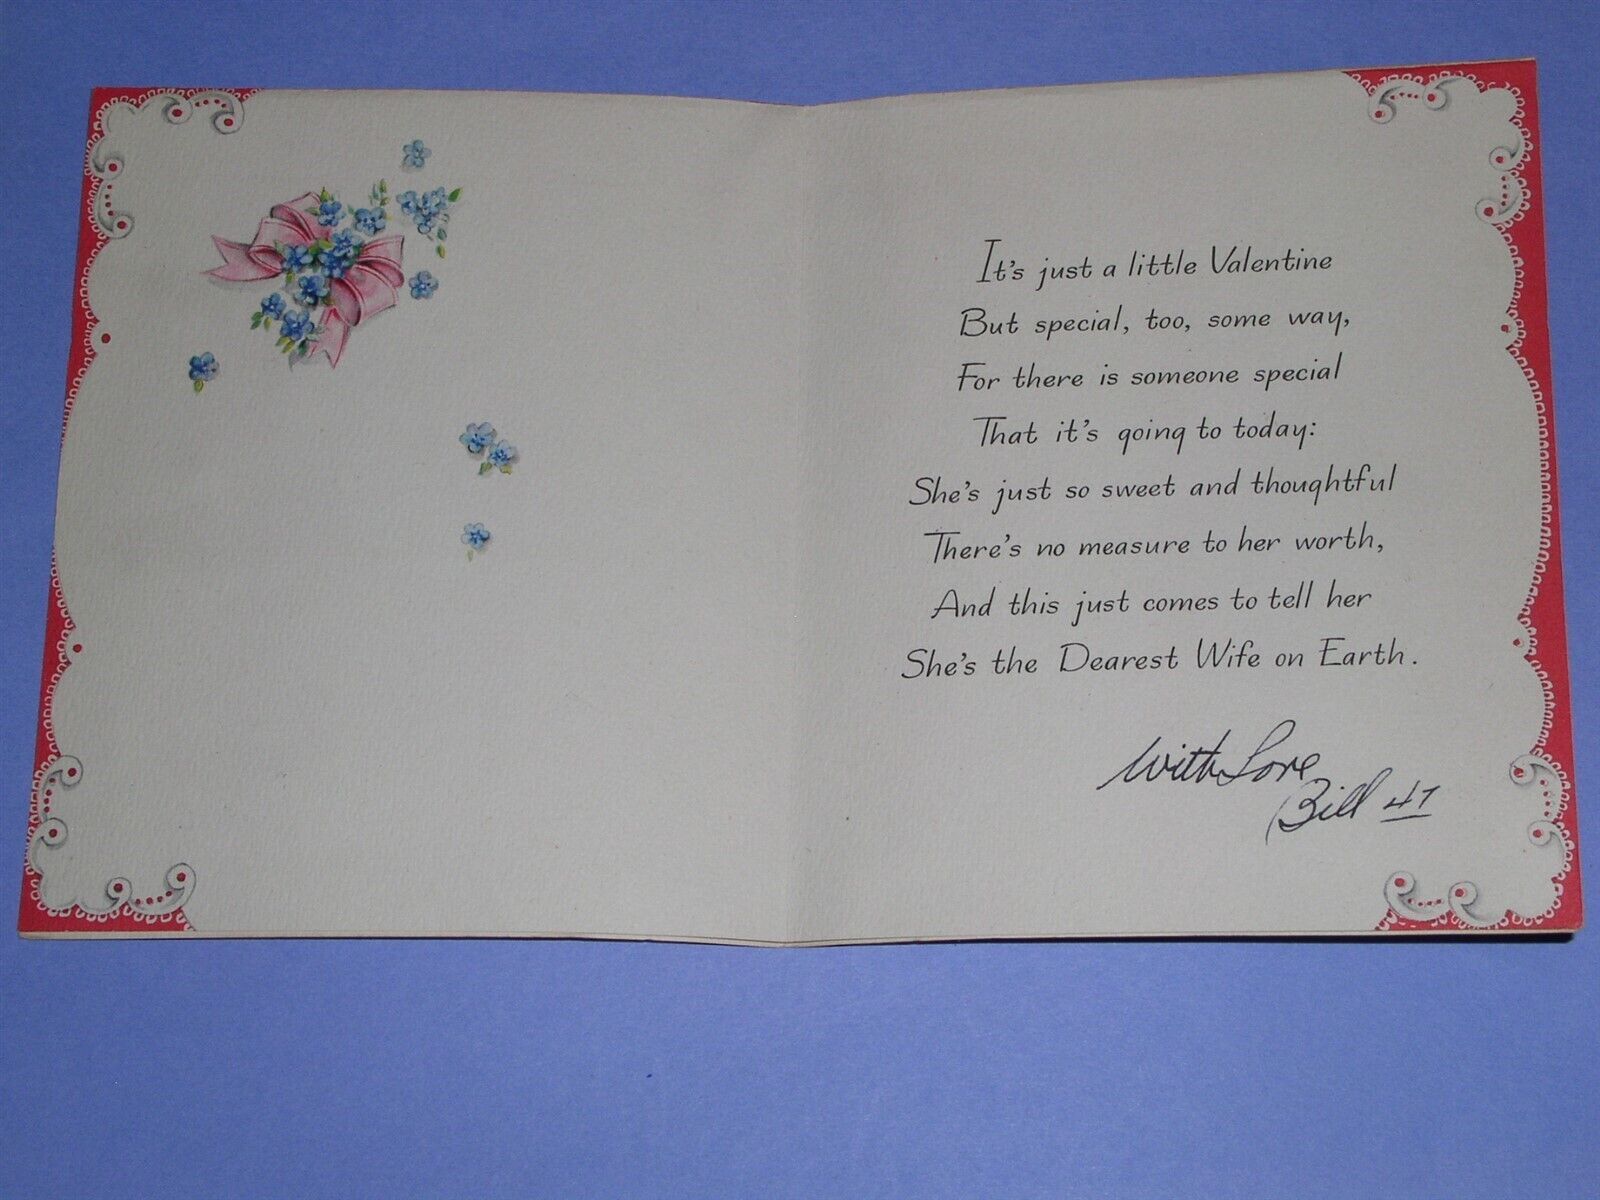 It's just a little Valentine
But special, too, some way,
For there is someone special
That it's going to today:
She's just so sweet and thoughtful
There's no measure to her worth,
And this just comes to tell her
She's the Dearest Wife on Earth.
With Love
Bill 47